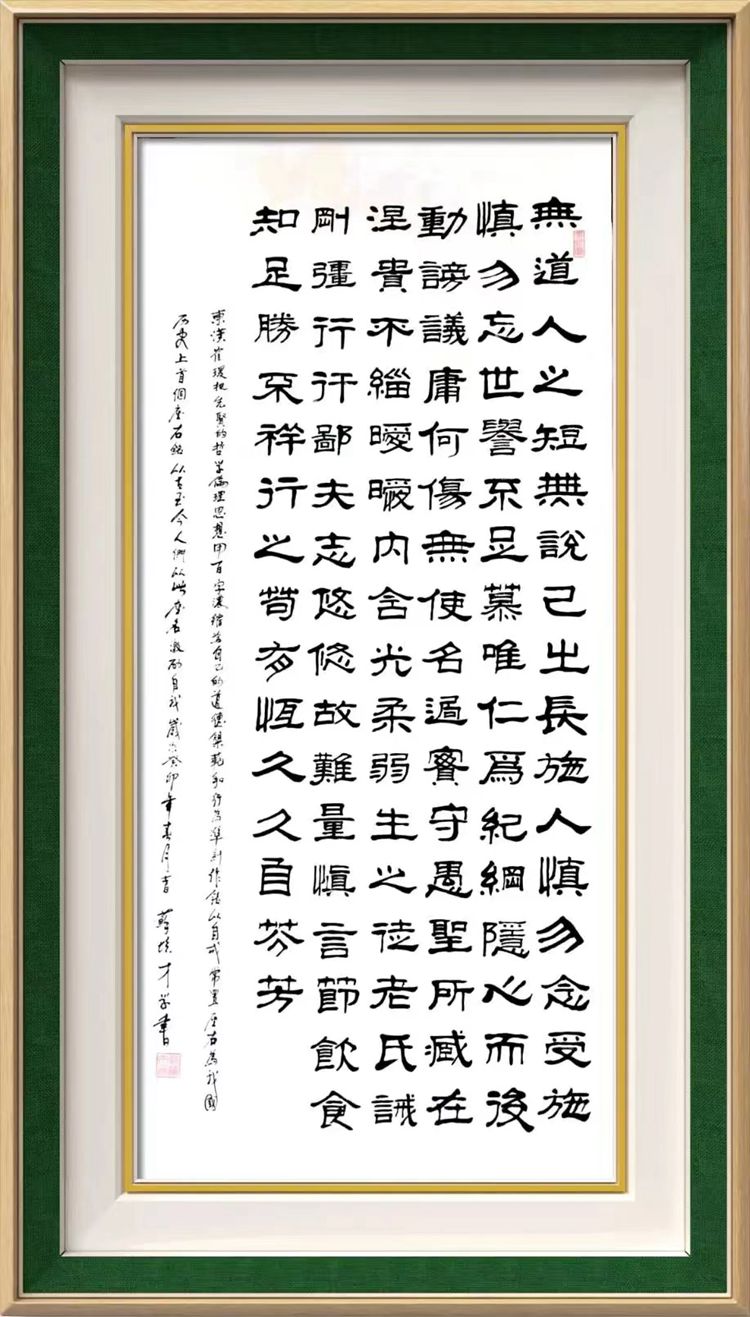 無道人之短無說己之長施人慎勿念受施
慎勿忘世譽不足慕唯仁爲紀綱隱心而後
動謗議庸何傷無使名過實守愚聖所臧在
涅貴不緇曖曖內含光柔弱生之徒老氏誡
剛彊行行鄙夫志悠悠故難量慎言節飲食
知足勝不祥行之苟有恆久久自芬芳
東漢崔瑗把先賢的哲学倫理思想用百字濃缩為自己的道德規範和行為準則作銘以自戒常置座右為我國
历史上首個座右銘从古至今人們以此座右激励自我歲次癸卯年春月吉 蘇才学書